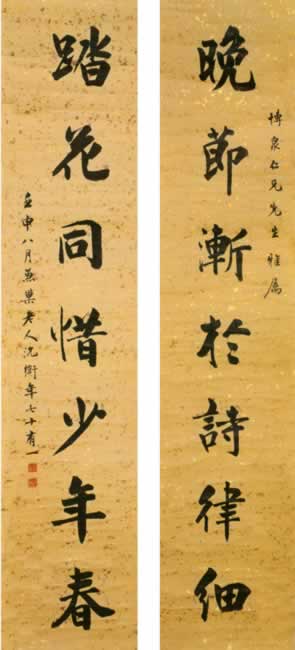 博泉仁兄先生雅属
晚節漸於詩律細
踏花同惜少年春
壬申八月兼巢老人沈衛年七十有一